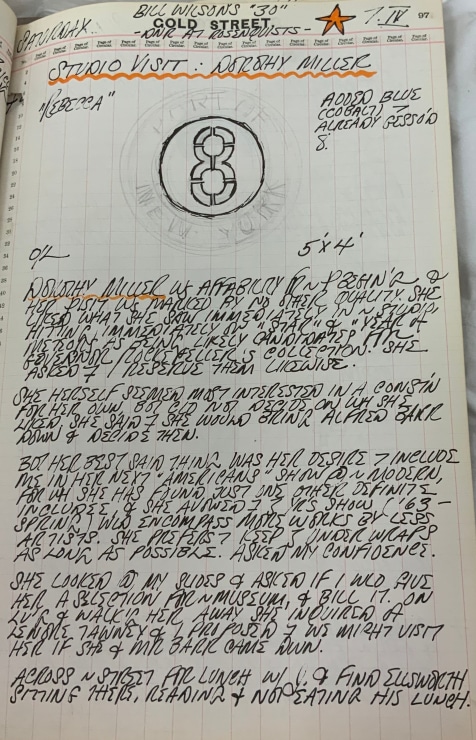 BILL WILSON'S "30"
SATURDAX
GOLD STREET.
DNR AT ROSENQUISTS
7.IV
97
STUDIO VISIT: DOROTHY MILLER
"REBECCA"
ADDED BLUE
(COBALT) 7
ALREADY GESSO'D
8.
PORT OF
NEW YORK
8
O/L
5'X4'
DOROTHY MILLER WS AFFABILITY
VISIT WS MARKED BY NO OTHER QUALITY. SHE
LIKED WHAT SHE SAW IMMEDIATELY IN
HITTING IMMEDIATELY ON "STAR" & "YEAR OF
METEORS" AS BEING LIKELY CANDIDATES FOR
GOVERNOR ROCKEFELLER'S COLLECTION. SHE
ASKED 7 I RESERVE THEM LIKEWISE.
SHE HERSELF SEEMED MOST INTERESTED IN A CONST'N
FOR HER OWN, BUT DID NOT DECIDE ON WH SHE
LIKED. SHE SAID 7 SHE WOULD BRING ALFRED BARR
DOWN & DECIDE THEN.
BUT HER BEST SAID THING WAS HER DESIRE 7 INCLUDE
ME IN HER NEXT "AMERICANS" SHOW @ N MODERN,
FOR WH SHE HAS FOUND JUST ONE OTHER DEFINITE
INCLUDEE & SHE AVOWED 7 YRS SHOW ('63 -
SPRING) WLD ENCOMPASS MORE WORKS BY LESS
ARTISTS. SHE PREFERS 7 KEEP 7 UNDER WRAPS
AS LONG AS POSSIBLE. ASKED MY CONFIDENCE.
SHE LOOKED @ MY SLIDES & ASKED IF I WLD GIVE
HER A SELECTION FOR N MUSEUM, & BILL IT. ON
LVG & WALK'G HER AWAY SHE INQUIRED OF
LENORE TAWNEY & I PROPOSED 7 WE MIGHT VISIT
HER IF SHE & MR BARR CAME DWN.
ACROSS N STREET FOR LUNCH W/ & FIND ELLSWORTH
SITTING THERE, READING & NOT EATING HIS LUNCH.